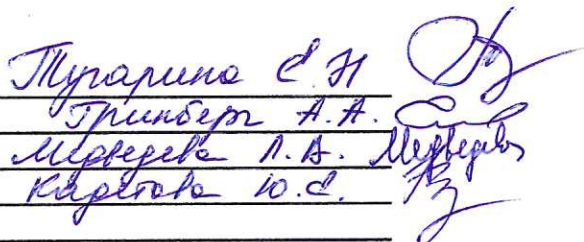 Тугарина Е.Н
Гринберг А.А.
Медведева Л.А. Медведев
Кадетова Ю.Е.